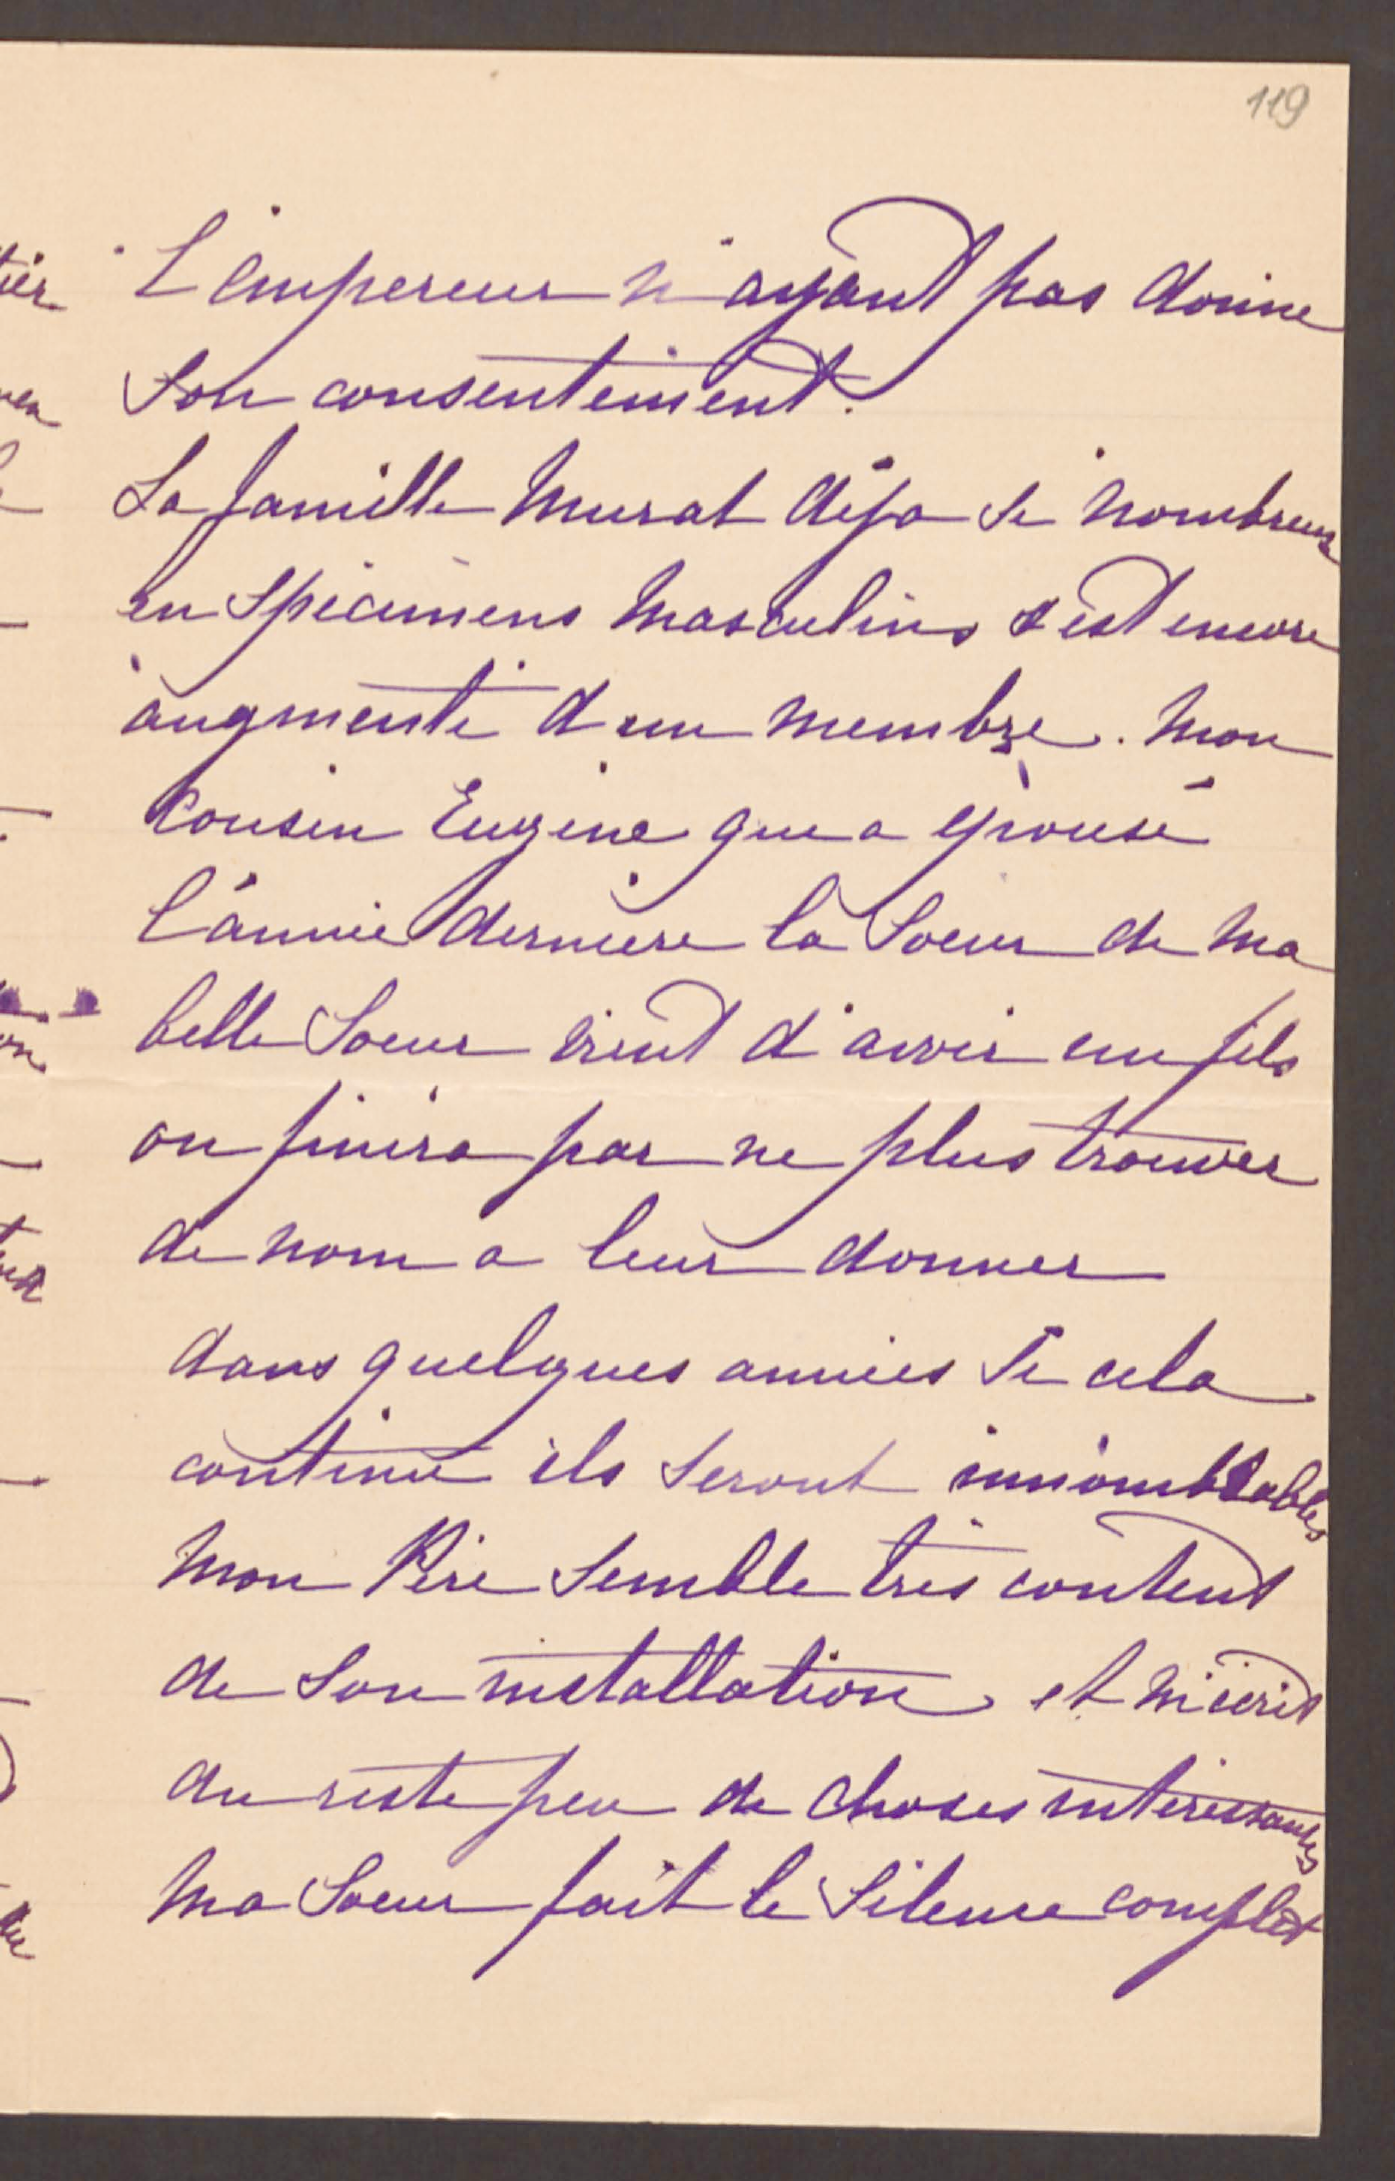 119
L'empereur n'ayant pas donne
son consentement.
La famille Murat déja si nombreuse
en spécimens masculins s'est encore
augmenté d'un membre. Mon
cousin Eugène que a épousé
l'année derniere la Soeur de ma
belle Soeur vient d'avoir un fils
on finira par ne plus trouver
de nom a leur donner
dans quelques années si cela
continue ils seront innombrables
Mon Père semble très content
de son installation et m'écrit
du reste peu de choses intéressantes
Ma Soeur fait le silence complet